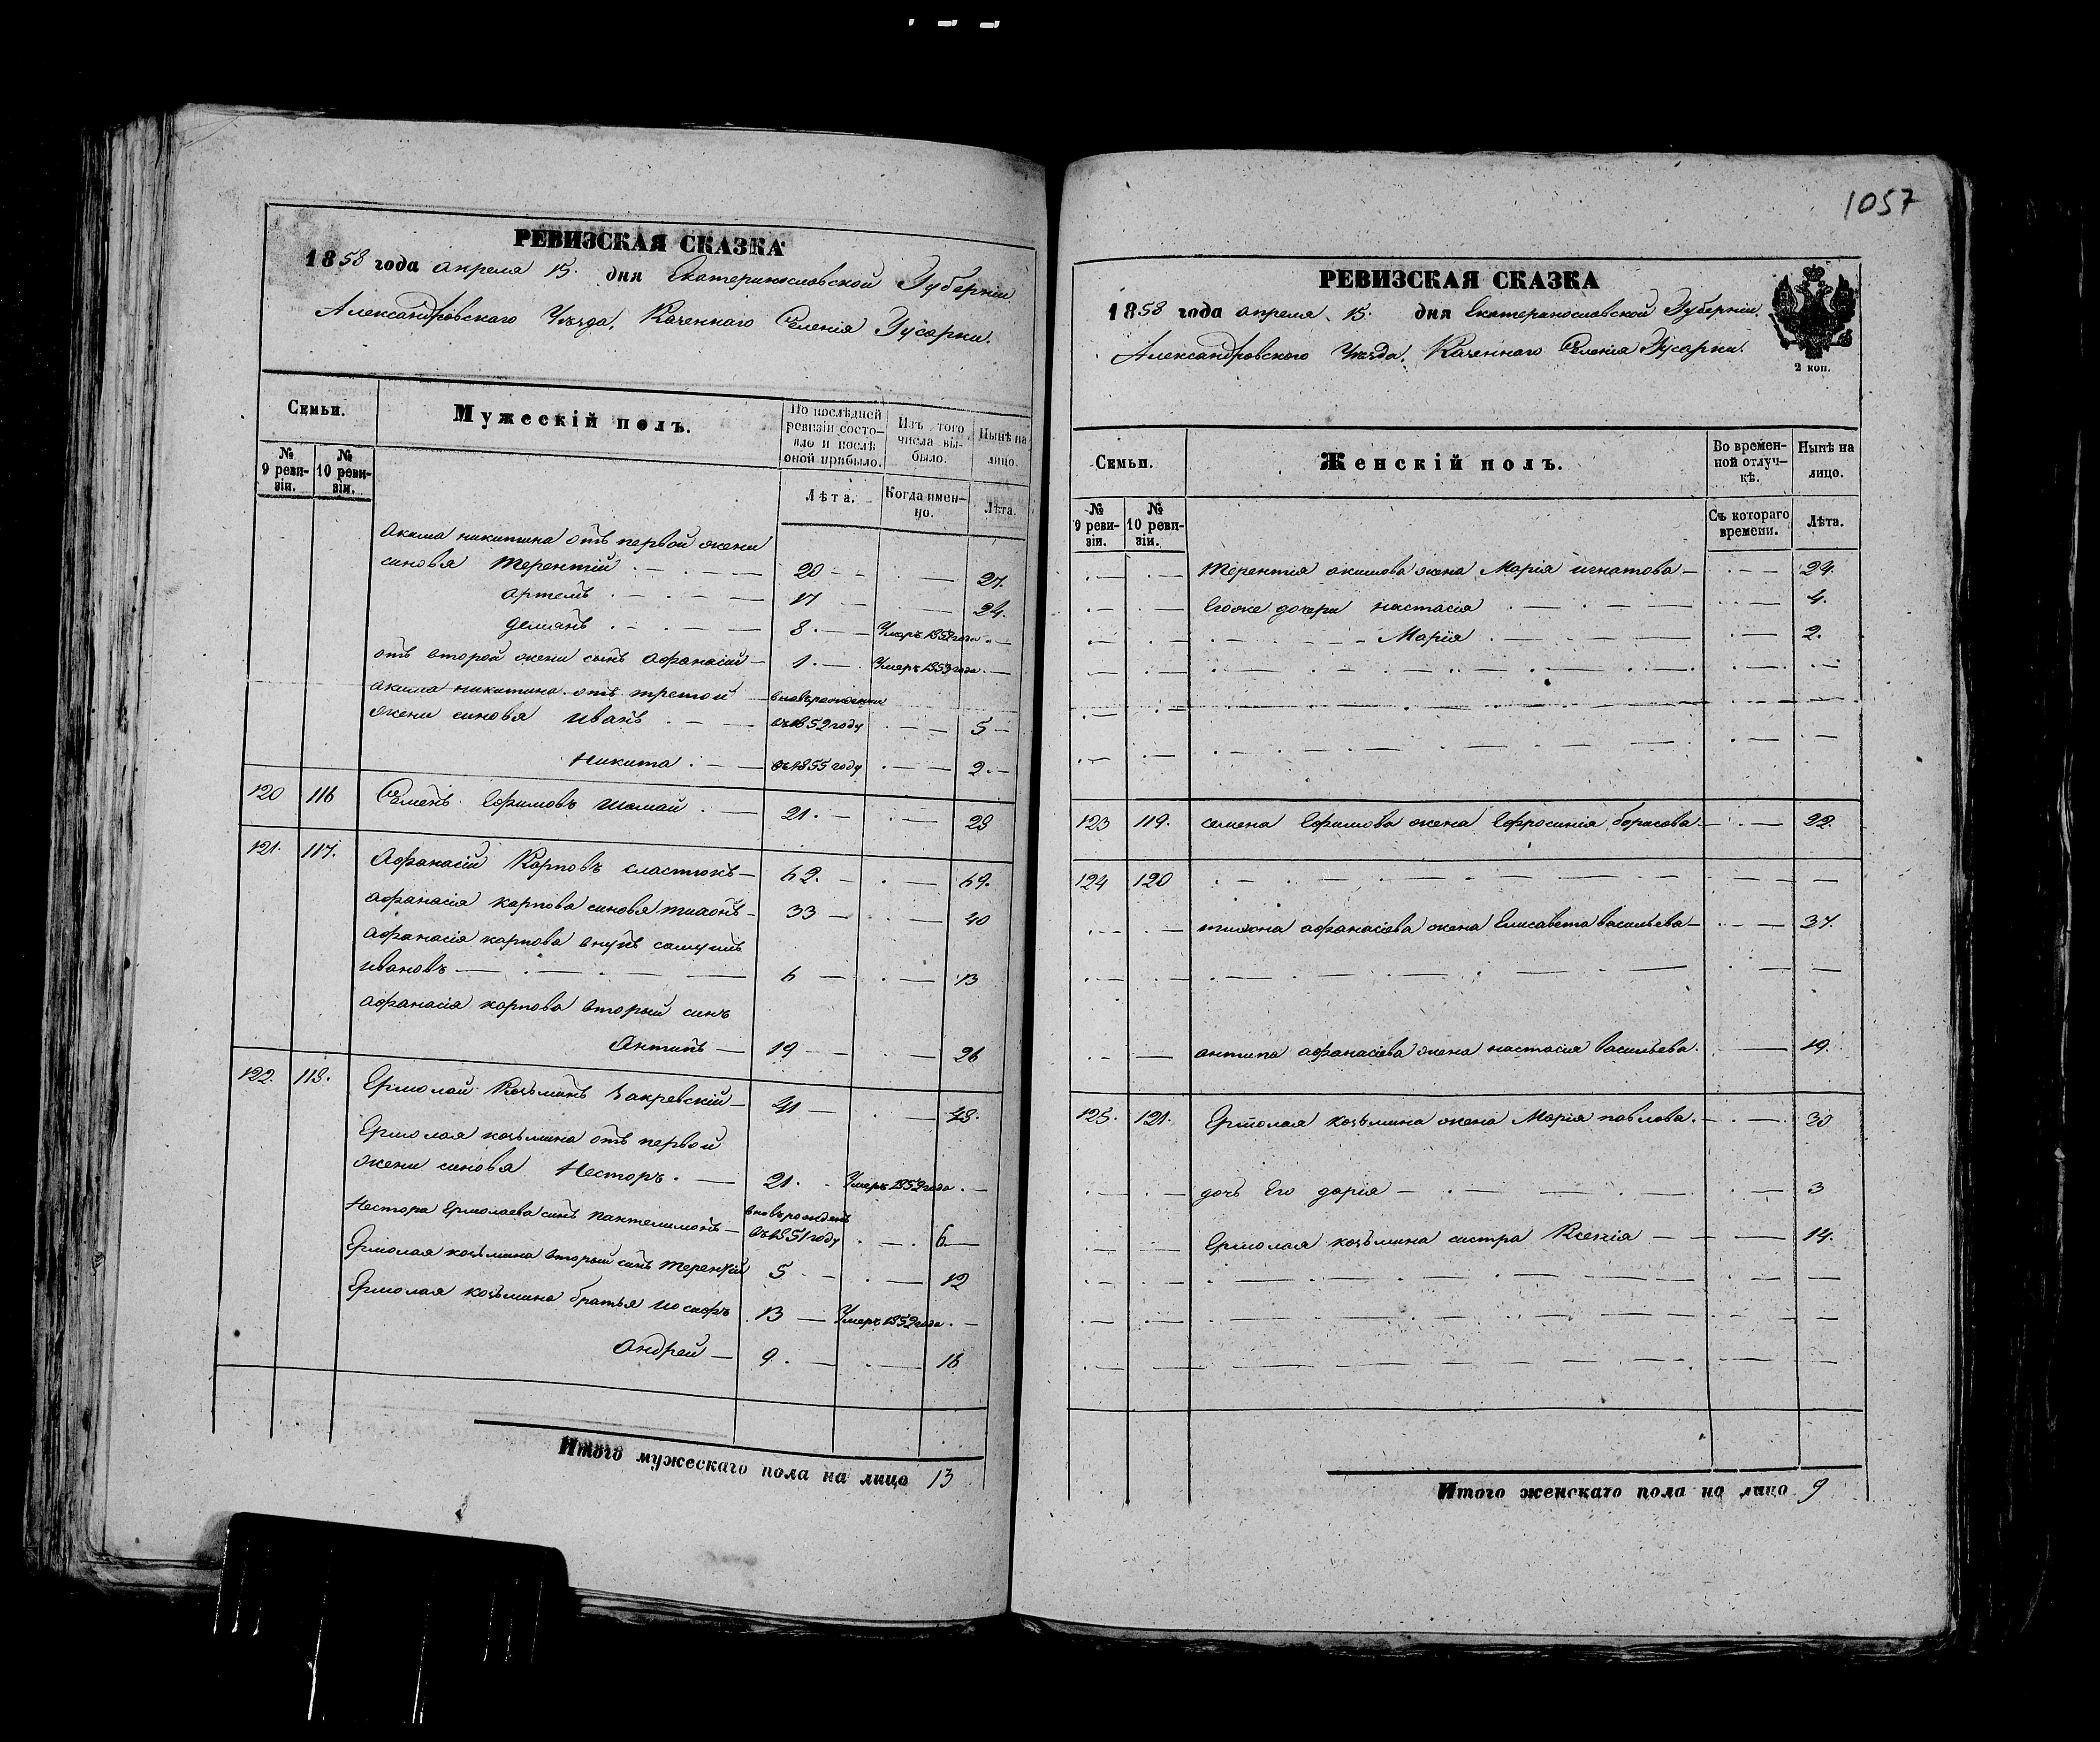 1057
РЕВИЗСКАЯ СКАЗКА
1858 года апреля 15. дня Екатеринославской Губерніи
Александровскаго Уѣзда, Казеннаго Селенія Гусарки.
Семьи.
Мужескій полъ.
По послѣдней ревизіи состояло и послѣ оной прибыло.
Изъ того числа выбыло.
Нынѣ на лицо.
№ 9 ревизіи.
№ 10 ревизіи.
Лѣта.
Когда именно.
Лѣта.
акима никитина отъ первой жени
синовя Терентий 20 27.
артемъ 17 24.
демианъ 8. Умеръ 1852 года
отъ второй жени сынъ афанасий 1. Умеръ 1853 года
акима никитина отъ третой
жени синовя иванъ въ 1852 году 5
Никита въ 1855 году 2.
120 116 Семенъ Ефимовъ шамай 21. 28
121. 117. Афанасій Карповъ сластюнъ 62. 69.
афанасія карпова синовя тихонъ 33 40
афанасія карпова внукъ самуилъ
ивановъ 6 13
афанасія карпова вторый синъ
Антипъ 19 26
122. 118. Ермолай Козьминъ Закревскій 41 48.
Ермолая козьмина отъ первой
жени синовя Несторъ. 21. Умеръ 1852 года
Нестора Ермолаева синъ пантелимонъ вновьрожденъ въ 1851 году 6
Ермолая козьмина вторый синъ терентій 5 12
Ермолая козьмина братья иосифъ 13 Умеръ 1852 года
Андрей 9. 16
Итого мужескаго пола на лицо 13
РЕВИЗСКАЯ СКАЗКА
1858 года апреля 15. дня Екатеринославской Губерніи.
Александровского Уѣзда, Казеннаго Селенія Гусарки.
2 коп.
Семьи.
Женскій полъ.
Во временной отлучкѣ.
Нынѣ на лицо.
№ 9 ревизіи.
№ 10 ревизіи.
Съ котораго времени.
Лѣта.
Терентія акимова жена Марія игнатова 24.
Егоже дочери настасія 4.
Марія 2.
123 119. семена Ефимова жена Ефросинія борисова 22.
124 120
тихона афанасіева жена Елисавета васильева 37.
антипа афанасіева жена настасія васильева. 19.
125. 121. Ермолая козьмина жена Марія павлова. 30
дочь Его дарія 3
Ермолая козьмина систра Ксенія 14.
Итого женскаго пола на лицо 9